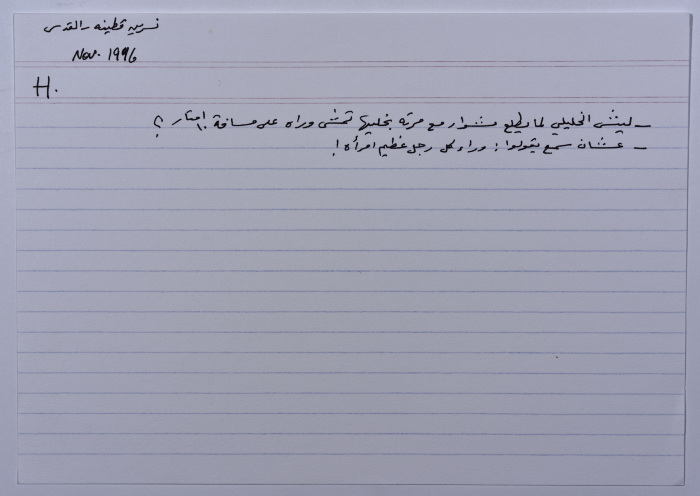 نسرين قطينه - القدس
Nov. 1996
H.
- ليش الخليلي لما يطلع مشوار مع مرته بخليها تمشي وراه على مسافة ١٠ امتار ؟
- عشان سمع بقولوا : وراء كل رجل عظيم امرأة !